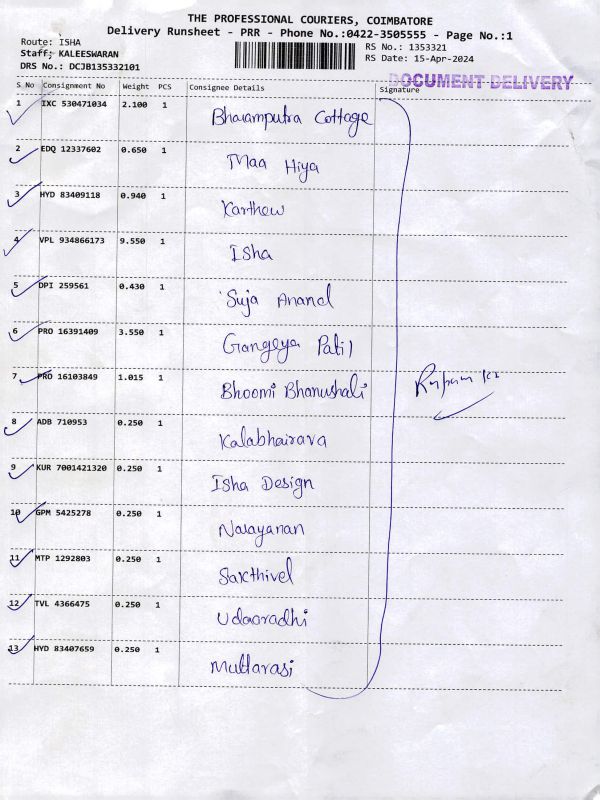 THE PROFESSIONAL COURIERS, COIMBATORE
Delivery Runsheet - PRR - Phone No.:0422-3505555 - Page No.:1
Route: ISHA
Staff: KALEESWARAN
DRS No.: DCJB135332101
RS No.: 1353321
RS Date: 15-Apr-2024
DOCUMENT DELIVERY
S No Consignment No Weight PCS Consignee Details Signature
1 IXC 530471034 2.100 1 Bharamputra Cottage
2 EDQ 12337602 0.650 1 Maa Hiya
3 HYD 83409118 0.940 1 Karthew
4 VPL 934866173 9.550 1 Isha
5 DPI 259561 0.430 1 Suja Anand
6 PRO 16391409 3.550 1 Gangeya Patil
7 PRO 16103849 1.015 1 Bhoomi Bhanushali
8 ADB 710953 0.250 1 Kalabhairava
9 KUR 7001421320 0.250 1 Isha Design
10 GPM 5425278 0.250 1 Narayanan
11 MTP 1292803 0.250 1 Sakthivel
12 TVL 4366475 0.250 1
13 HYD 83407659 0.250 1 Muttarasi